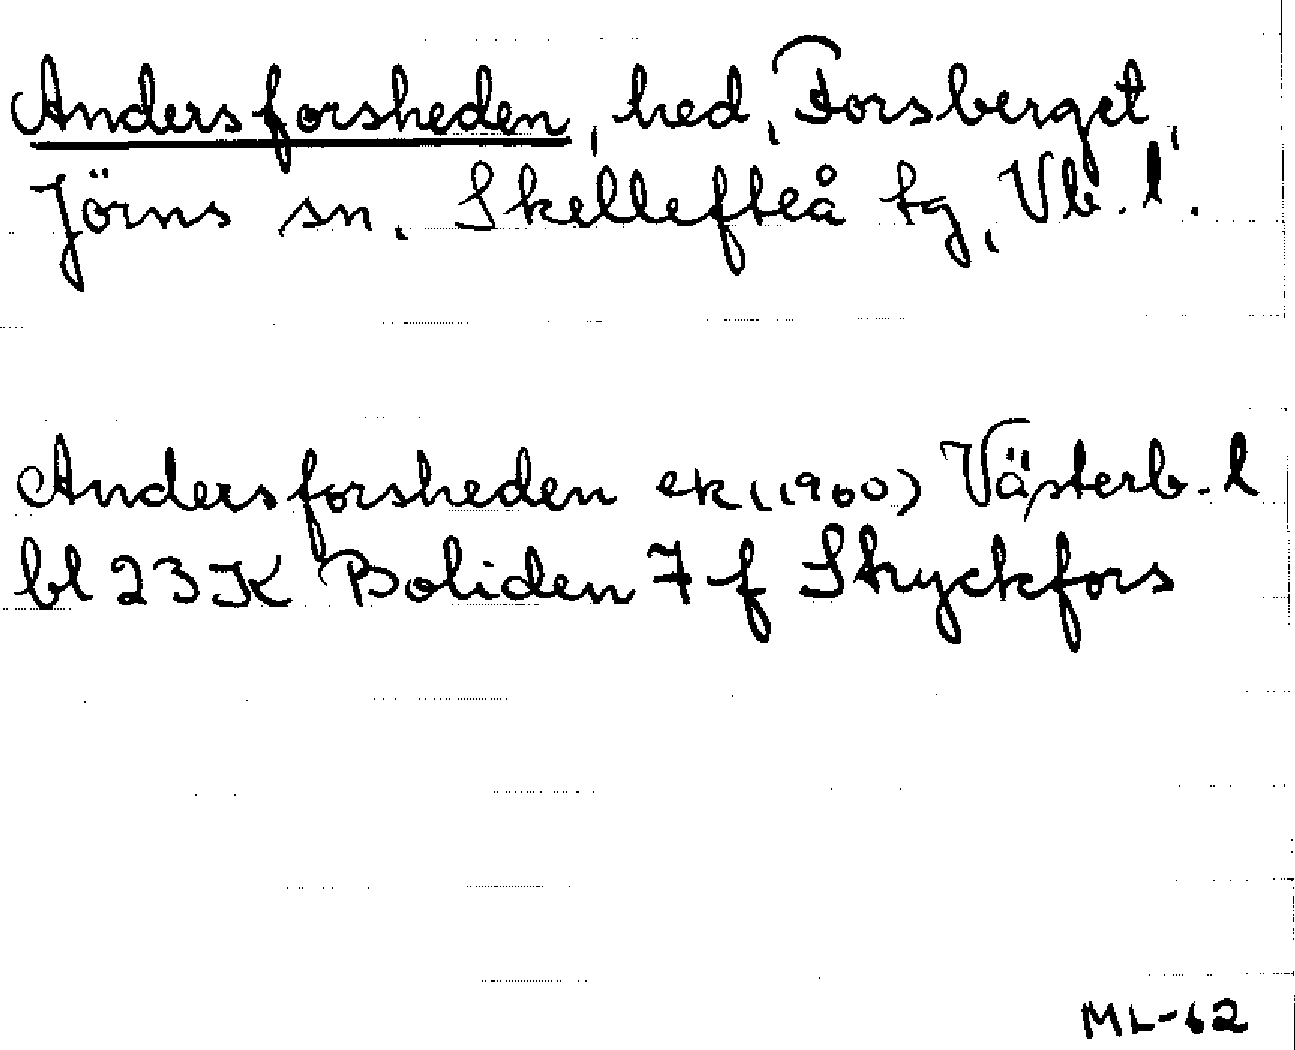 Andersforsheden, hed, Forsberget,
Jörns sn. Skellefteå tg, Vb. l.
Andersforsheden ek (1960) Västerb. l
bl 23 K Boliden 7 f Stryckfors
ML-62